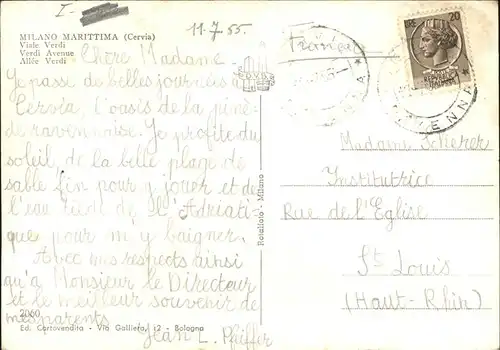 I-
11.7.55.
MILANO MARITTIMA (Cervia)
Viale Verdi
Verdi Avenue
Allée Verdi
Chère Madame
Je passe de belles journées à
Cervia, l'oasis de la pinè-
de ravennaise. Je profite du
soleil, de la belle plage de
sable fin pour y jouer et de
l'eau tiède de l'Adriati-
que pour m'y baigner.
Avec mes respects ainsi
qu'à Monsieur le Directeur
et le meilleur souvenir de
mes parents
Jean L. Pfeiffer
2060
Ed. Cartovendita - Via Galliera, 12 - Bologna
Rotalfoto - Milano
(Français)
20
ENNA
Madame Scherer
Institutrice
Rue de l'Eglise
St Louis
(Haut-Rhin)